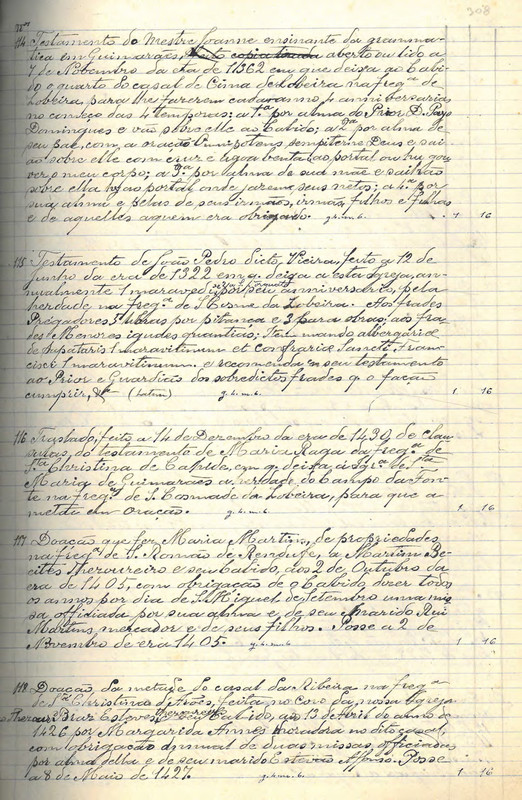 308
Nos
114 Testamento do Mestre Joanne ensinante da gramma-
tica em Guimarães, aberto ou lido a
7 de Novembro da era de 1362 em que deixa ao Cabi-
do o quarto do casal de Cima de Lobeira na freg.ª de
Lobeira, para lhe fazerem cada anno, 4 anniversarios
no começo das 4 temporas: a 1.ª por alma do Prior D. Payo
Domingues e vão sobre elle ao Cabido; a 2.ª por alma de
seu pae, com a oração Omnipotens sempiterne Deus e sai-
ão sobre elle com cruz e agoa benta ao portal ou hu jou-
ver o meu corpo; a 3.ª por alma de sua mãe e saião
sobre ella ao portal onde jazem seus netos; a 4.ª por
sua alma e pelas de seus irmãos, irmãs, filhos e filhas
e de aquelles a quem era obrigado. g. h. m. b. 1 16
115 Testamento de João Pedro dicto Vieira, feito a 12 de
Junho da era de 1322 em q. deixa a esta Igreja, an-
nualmente 1 maravedi por seu anniversario, pela
herdade na freg.ª de S. Cosme da Lobeira. Aos frades
Prégadores 3 libras por pitança e 3 para obras; aos fra-
des Menores iguaes quantias; Item mando albergariæ
de Sapatariis 1 maravitinum et Confrariæ Sancti Fran-
cisci 1 maravitinum. e recomenda em seu testamento
ao Prior e Guardião dos sobredictos frades q. o fação
cumprir, & (latim) g. h. m. b. 1 16
116 Traslado, feito a 14 de Dezembro da era de 1439, de clau-
sulas, do testamento de Maria Raga da freg.ª de
S.ta Christina de Cahide, em q. deixa á Igr.ª de S.ta
Maria de Guimarães a herdade do Campo da Fon-
te na freg.ª de S. Cosmade da Lobeira, para que a
metão em oração. g. h. m. b. 1 16
117 Doação que fez Maria Martins, de propriedades
na freg.ª de S. Romão de Rendufe, a Martim Be-
eites Thesoureiro e seu Cabido, aos 2 de Outubro da
era de 1405, com obrigação de o Cabido dizer todos
os annos por dia de S. Miguel de Setembro uma mis-
sa officiada por sua alma e de seu marido Rui
Martins, mercador e de seus filhos. Posse a 2 de
Novembro de era 1405. g. h. m. b. 1 16
118 Doação, da metade do casal da Ribeira na freg.ª
de S.ta Christina d'Arões, feita no Coro da nossa Igreja
a Braz Esteves, Thesoureiro e seu Cabido, aos 13 de Abril do anno de
1426 por Margarida Annes moradora no dito casal,
com obrigação annual de duas missas officiadas
por alma della e de seu marido Estevão Affonso. Posse
a 8 de Maio de 1427. g. h. m. b. 1 16